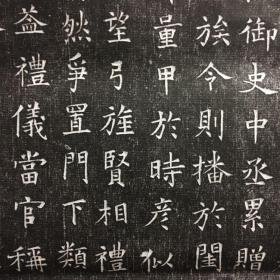 御史中丞累贈
族令則播於闺
量甲於時彦似
望弓旌賢相禮
然爭置門下類
益禮儀當官稱